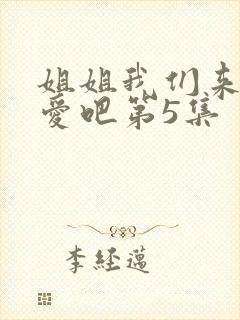 姐姐我们来
爱吧第5集
李经邁